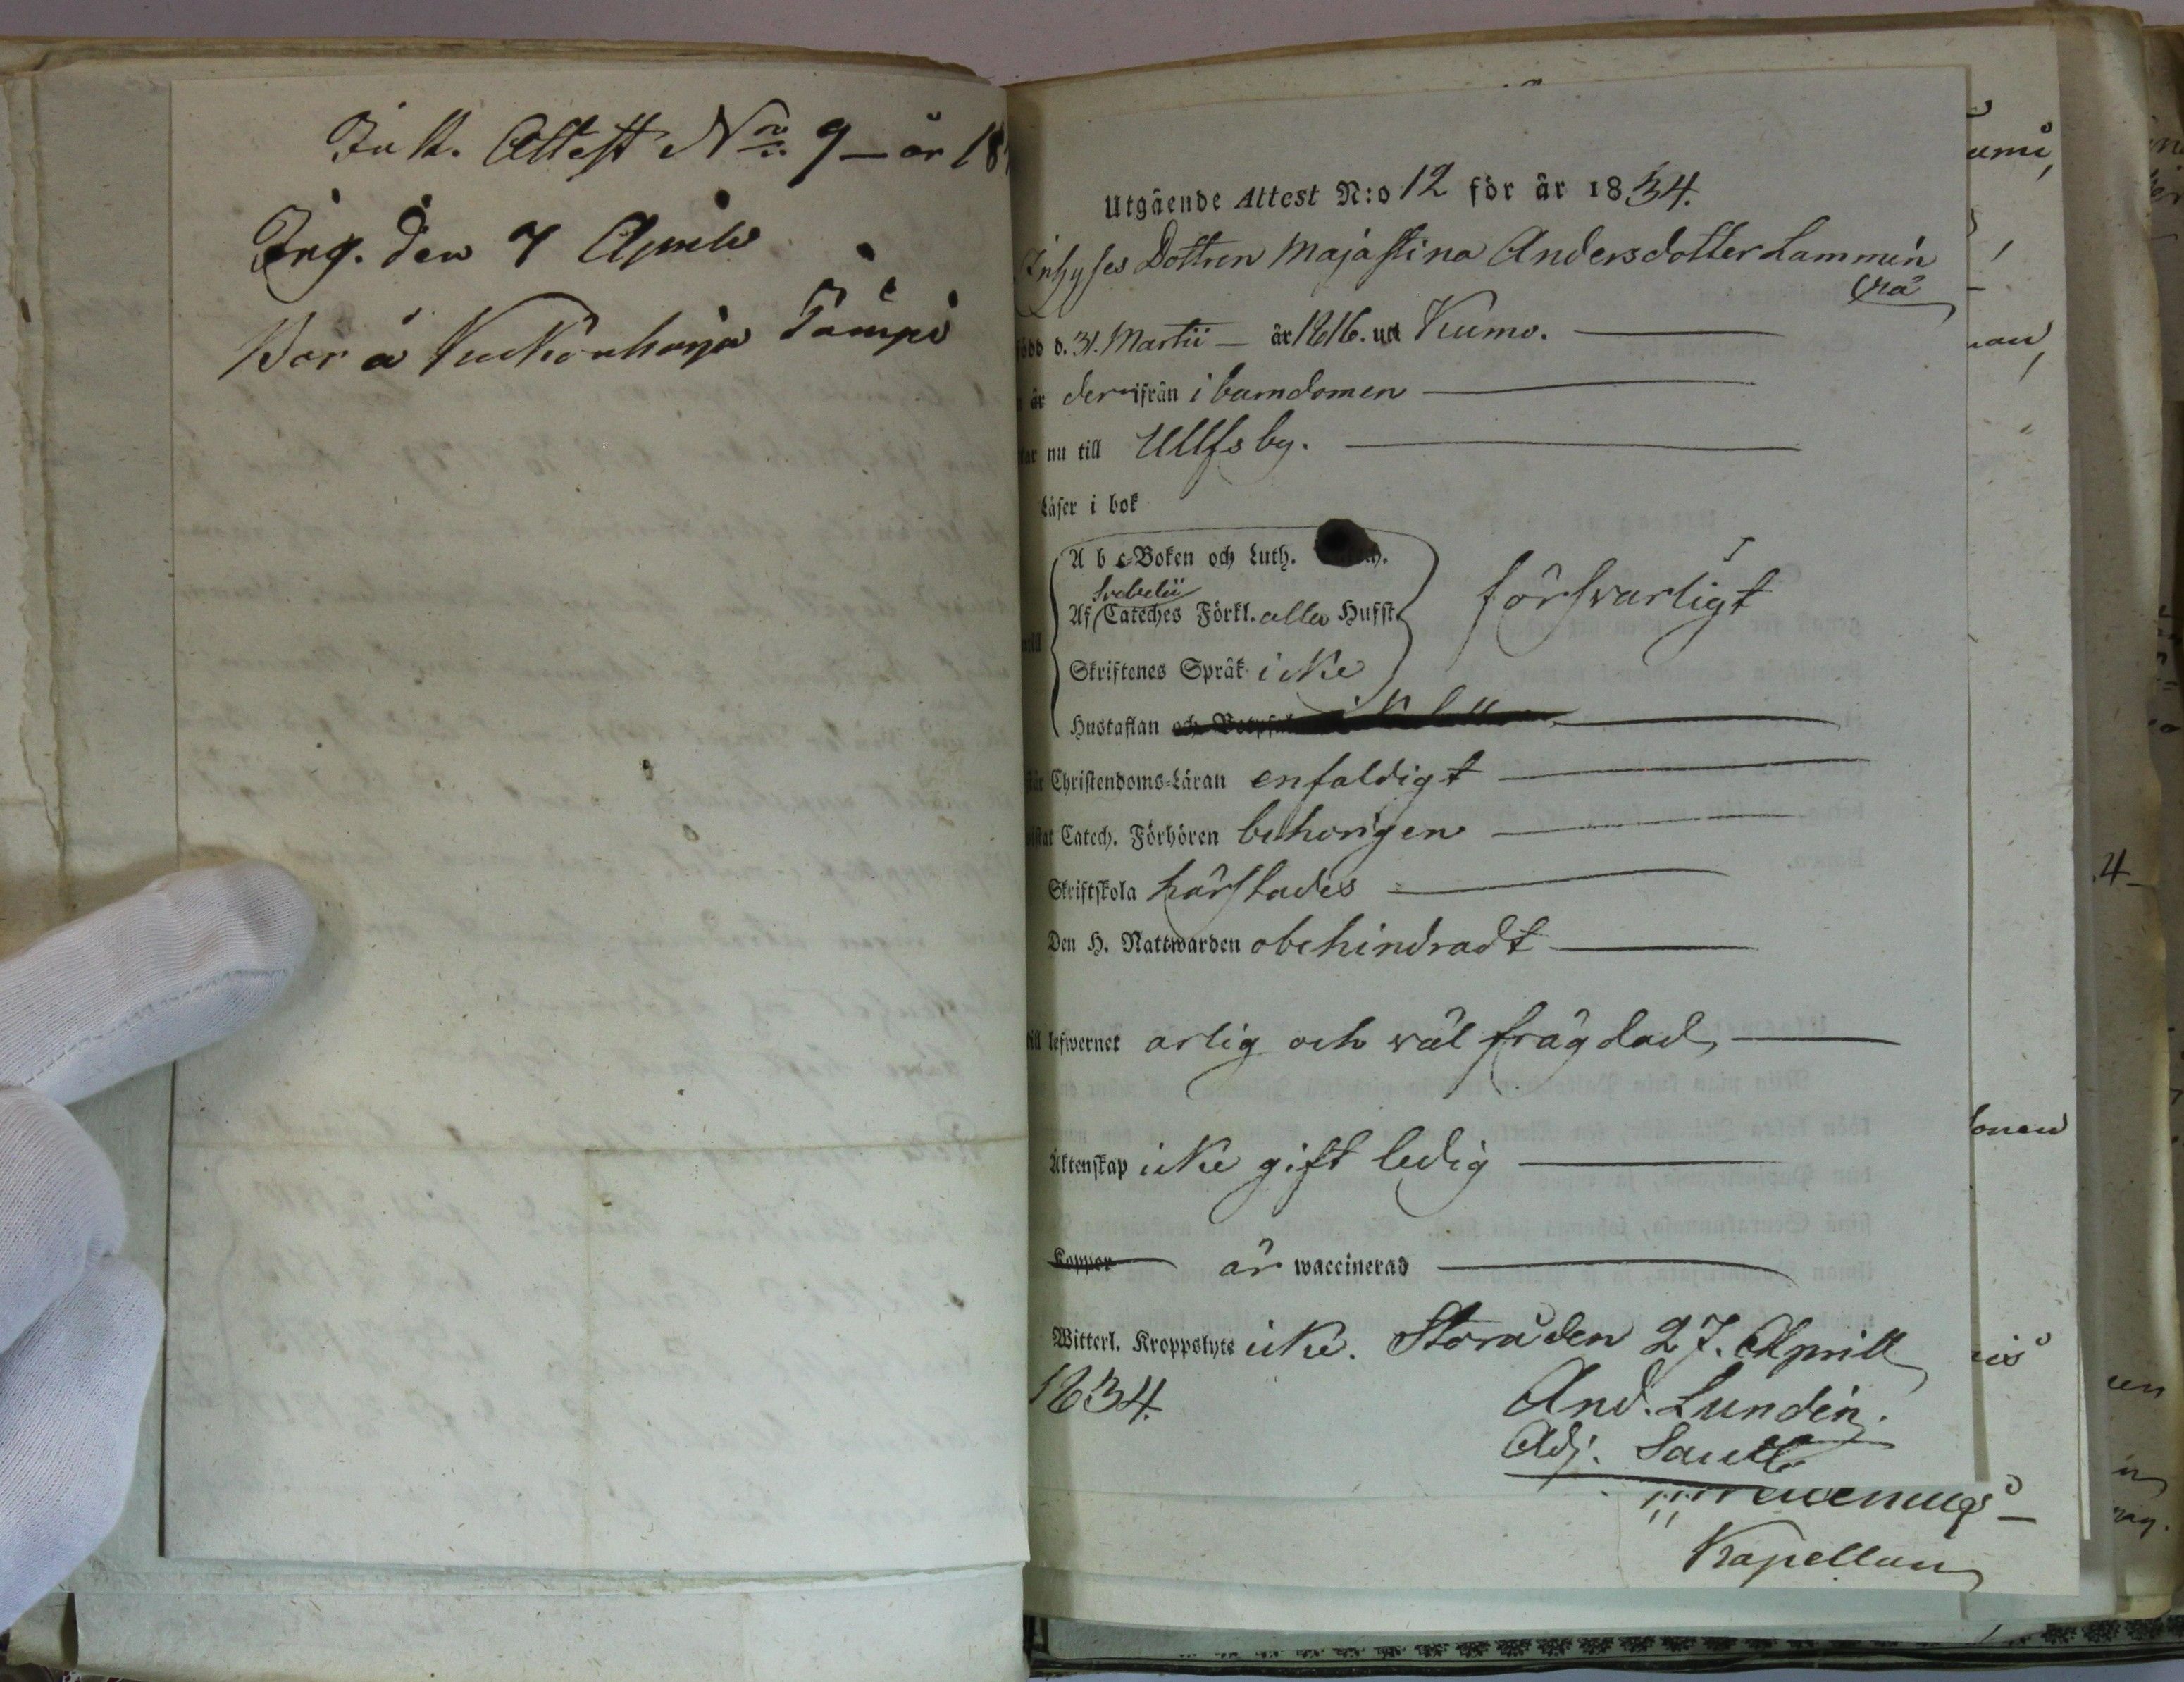 Inst. Attest No 9 — år 18
Ing. den 7 Aprile
Bor å Kuckonharja Tämpi
Utgående Attest N:o 12 för år 1834.
Inhyses Dottren Majastina Andersdotter Lammin
född d. 31. Martii — år 1816. uti Kumo.
är derifrån i barndomen
nu till Ulfsby.
Läser i bok
A b c-Boken och Luth.
Svebelii
Af Cateches Förkl. alla Hufst. försvarligt
Skriftenes Språk icke
Hustaflan
Christendoms-Läran enfaldigt
Catech. Förhören behörigen
Skriftskola härstädes
Den H. Nattwarden obehindradt
till lefwernet ärlig och väl frägdad,
Äktenskap icke gift ledig
Koppor är waccinerad
Witterl. Kroppslyte icke. Storå den 27. Aprill
1834. And. Lundén.
Adj.
Kapellan